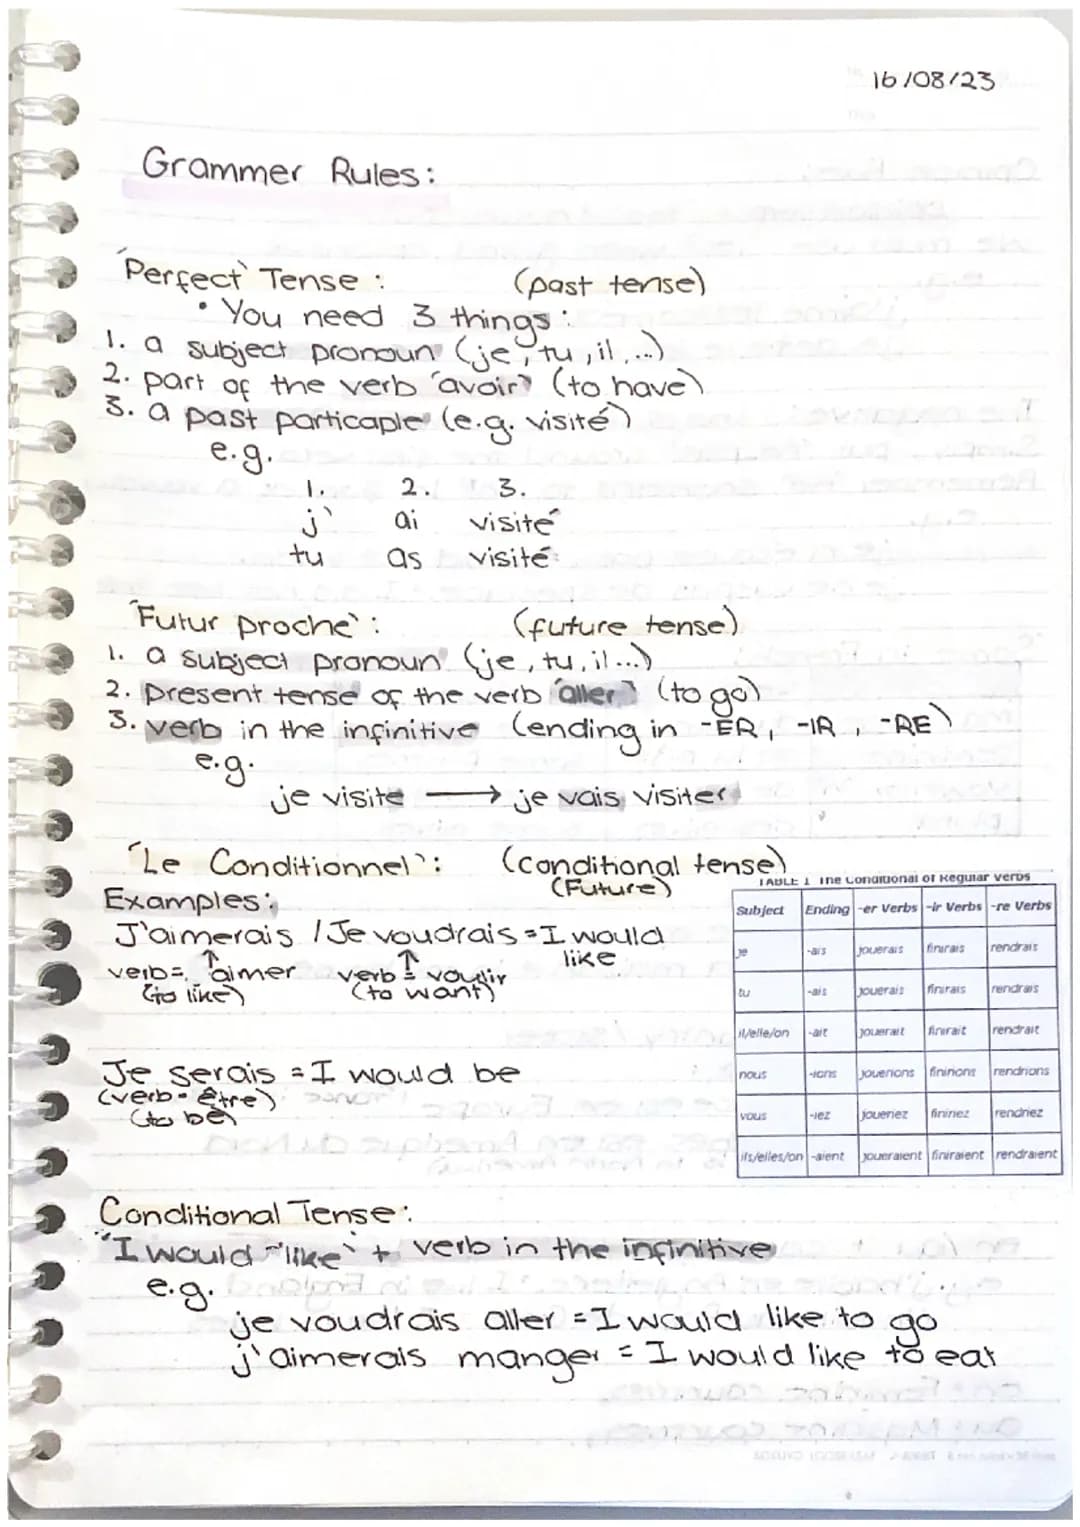 16/08/23
Grammer Rules:
'Perfect' Tense : (past tense)
• You need 3 things :
1. a subject pronoun (je, tu, il, ...)
2. part of the verb 'avoir' (to have)
3. a past particaple (e.g. visité)
e.g.
1. 2. 3.
j' ai visité
tu as visité
'Futur proche' : (future tense)
1. a subject pronoun (je, tu, il...)
2. present tense of the verb 'aller' (to go)
3. verb in the infinitive (ending in -ER, -IR, -RE)
e.g.
je visite → je vais visiter
'Le Conditionnel' : (conditional tense)
(Future)
Examples:
J'aimerais / Je voudrais = I would
like
verb = aimer verb = voulir
(to like) (to want)
TABLE 1 The Conditional of Regular Verbs
Subject Ending -er Verbs -ir Verbs -re Verbs
je -ais jouerais finirais rendrais
tu -ais jouerais finirais rendrais
il/elle/on -ait jouerait finirait rendrait
nous -ions jouerions finirions rendrions
vous -iez joueriez finiriez rendriez
ils/elles/on -aient joueraient finiraient rendraient
Je serais = I would be
(verb = être)
(to be)
Conditional Tense:
"I would 'like' + verb in the infinitive
e.g.
je voudrais aller = I would like to go
j'aimerais manger = I would like to eat